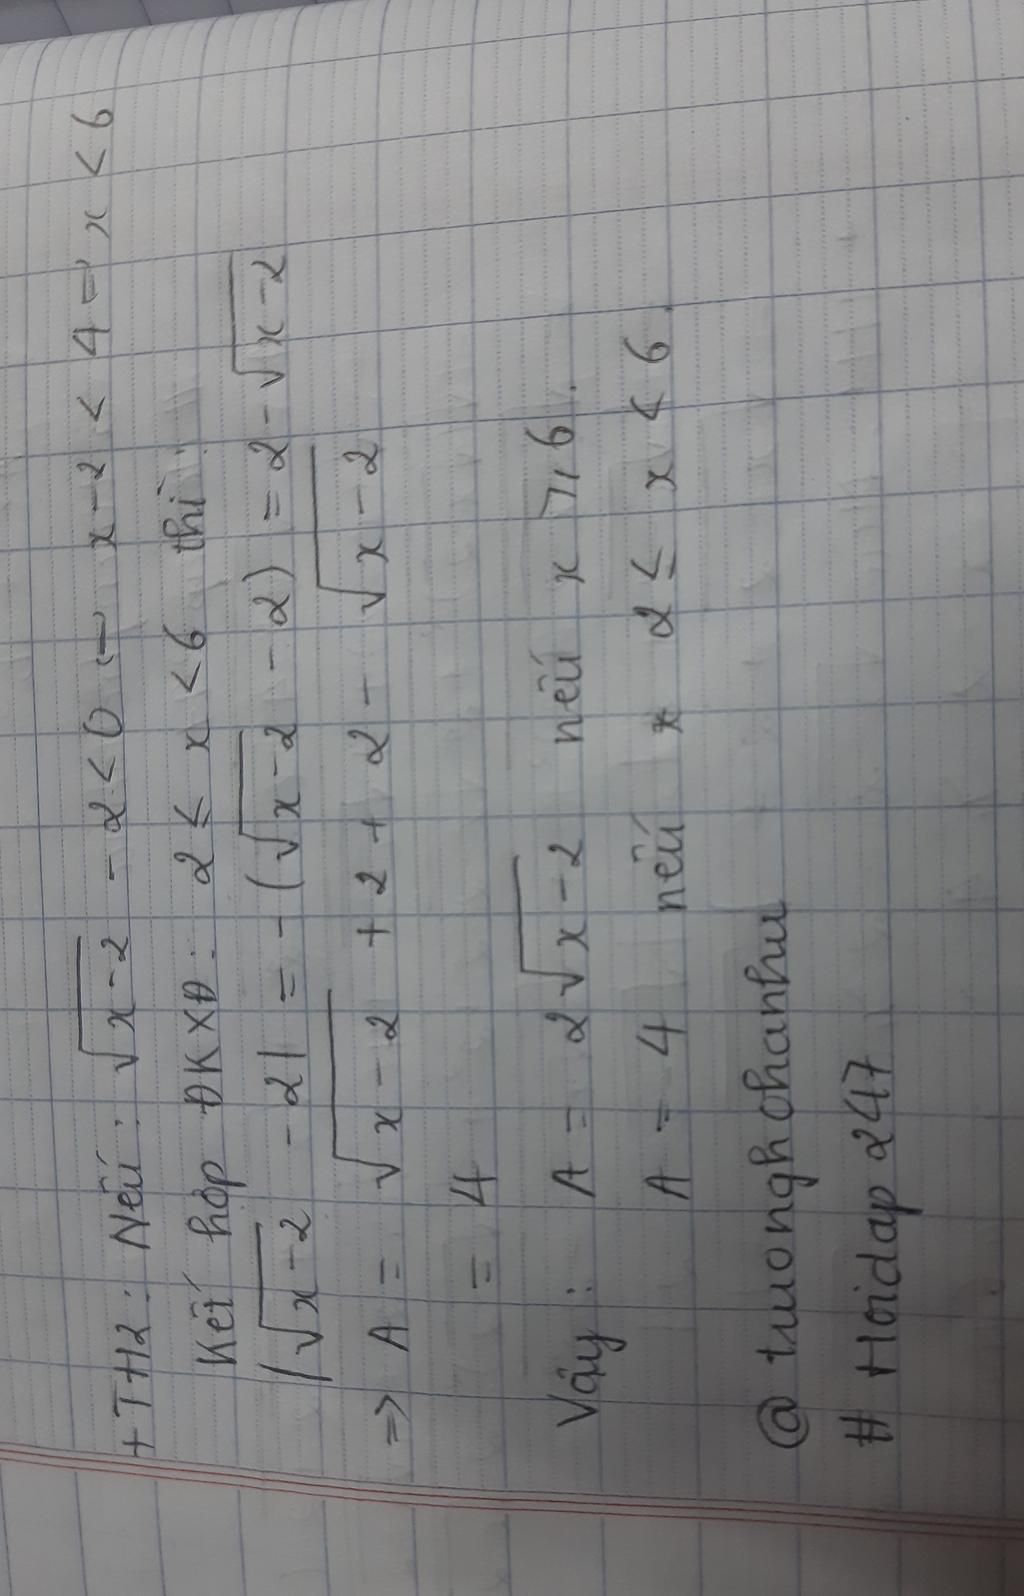 + TH2: Nếu: √(x-2) - 2 < 0 => x - 2 < 4 => x < 6
Kết hợp ĐKXĐ: 2 ≤ x < 6 thì:
|√(x-2) - 2| = -(√(x-2) - 2) = 2 - √(x-2)
=> A = √(x-2) + 2 + 2 - √(x-2)
= 4
Vậy: A = 2√(x-2) nếu x ≥ 6.
A = 4 nếu 2 ≤ x < 6.
@ truonghohanhu
# Hoidap 247